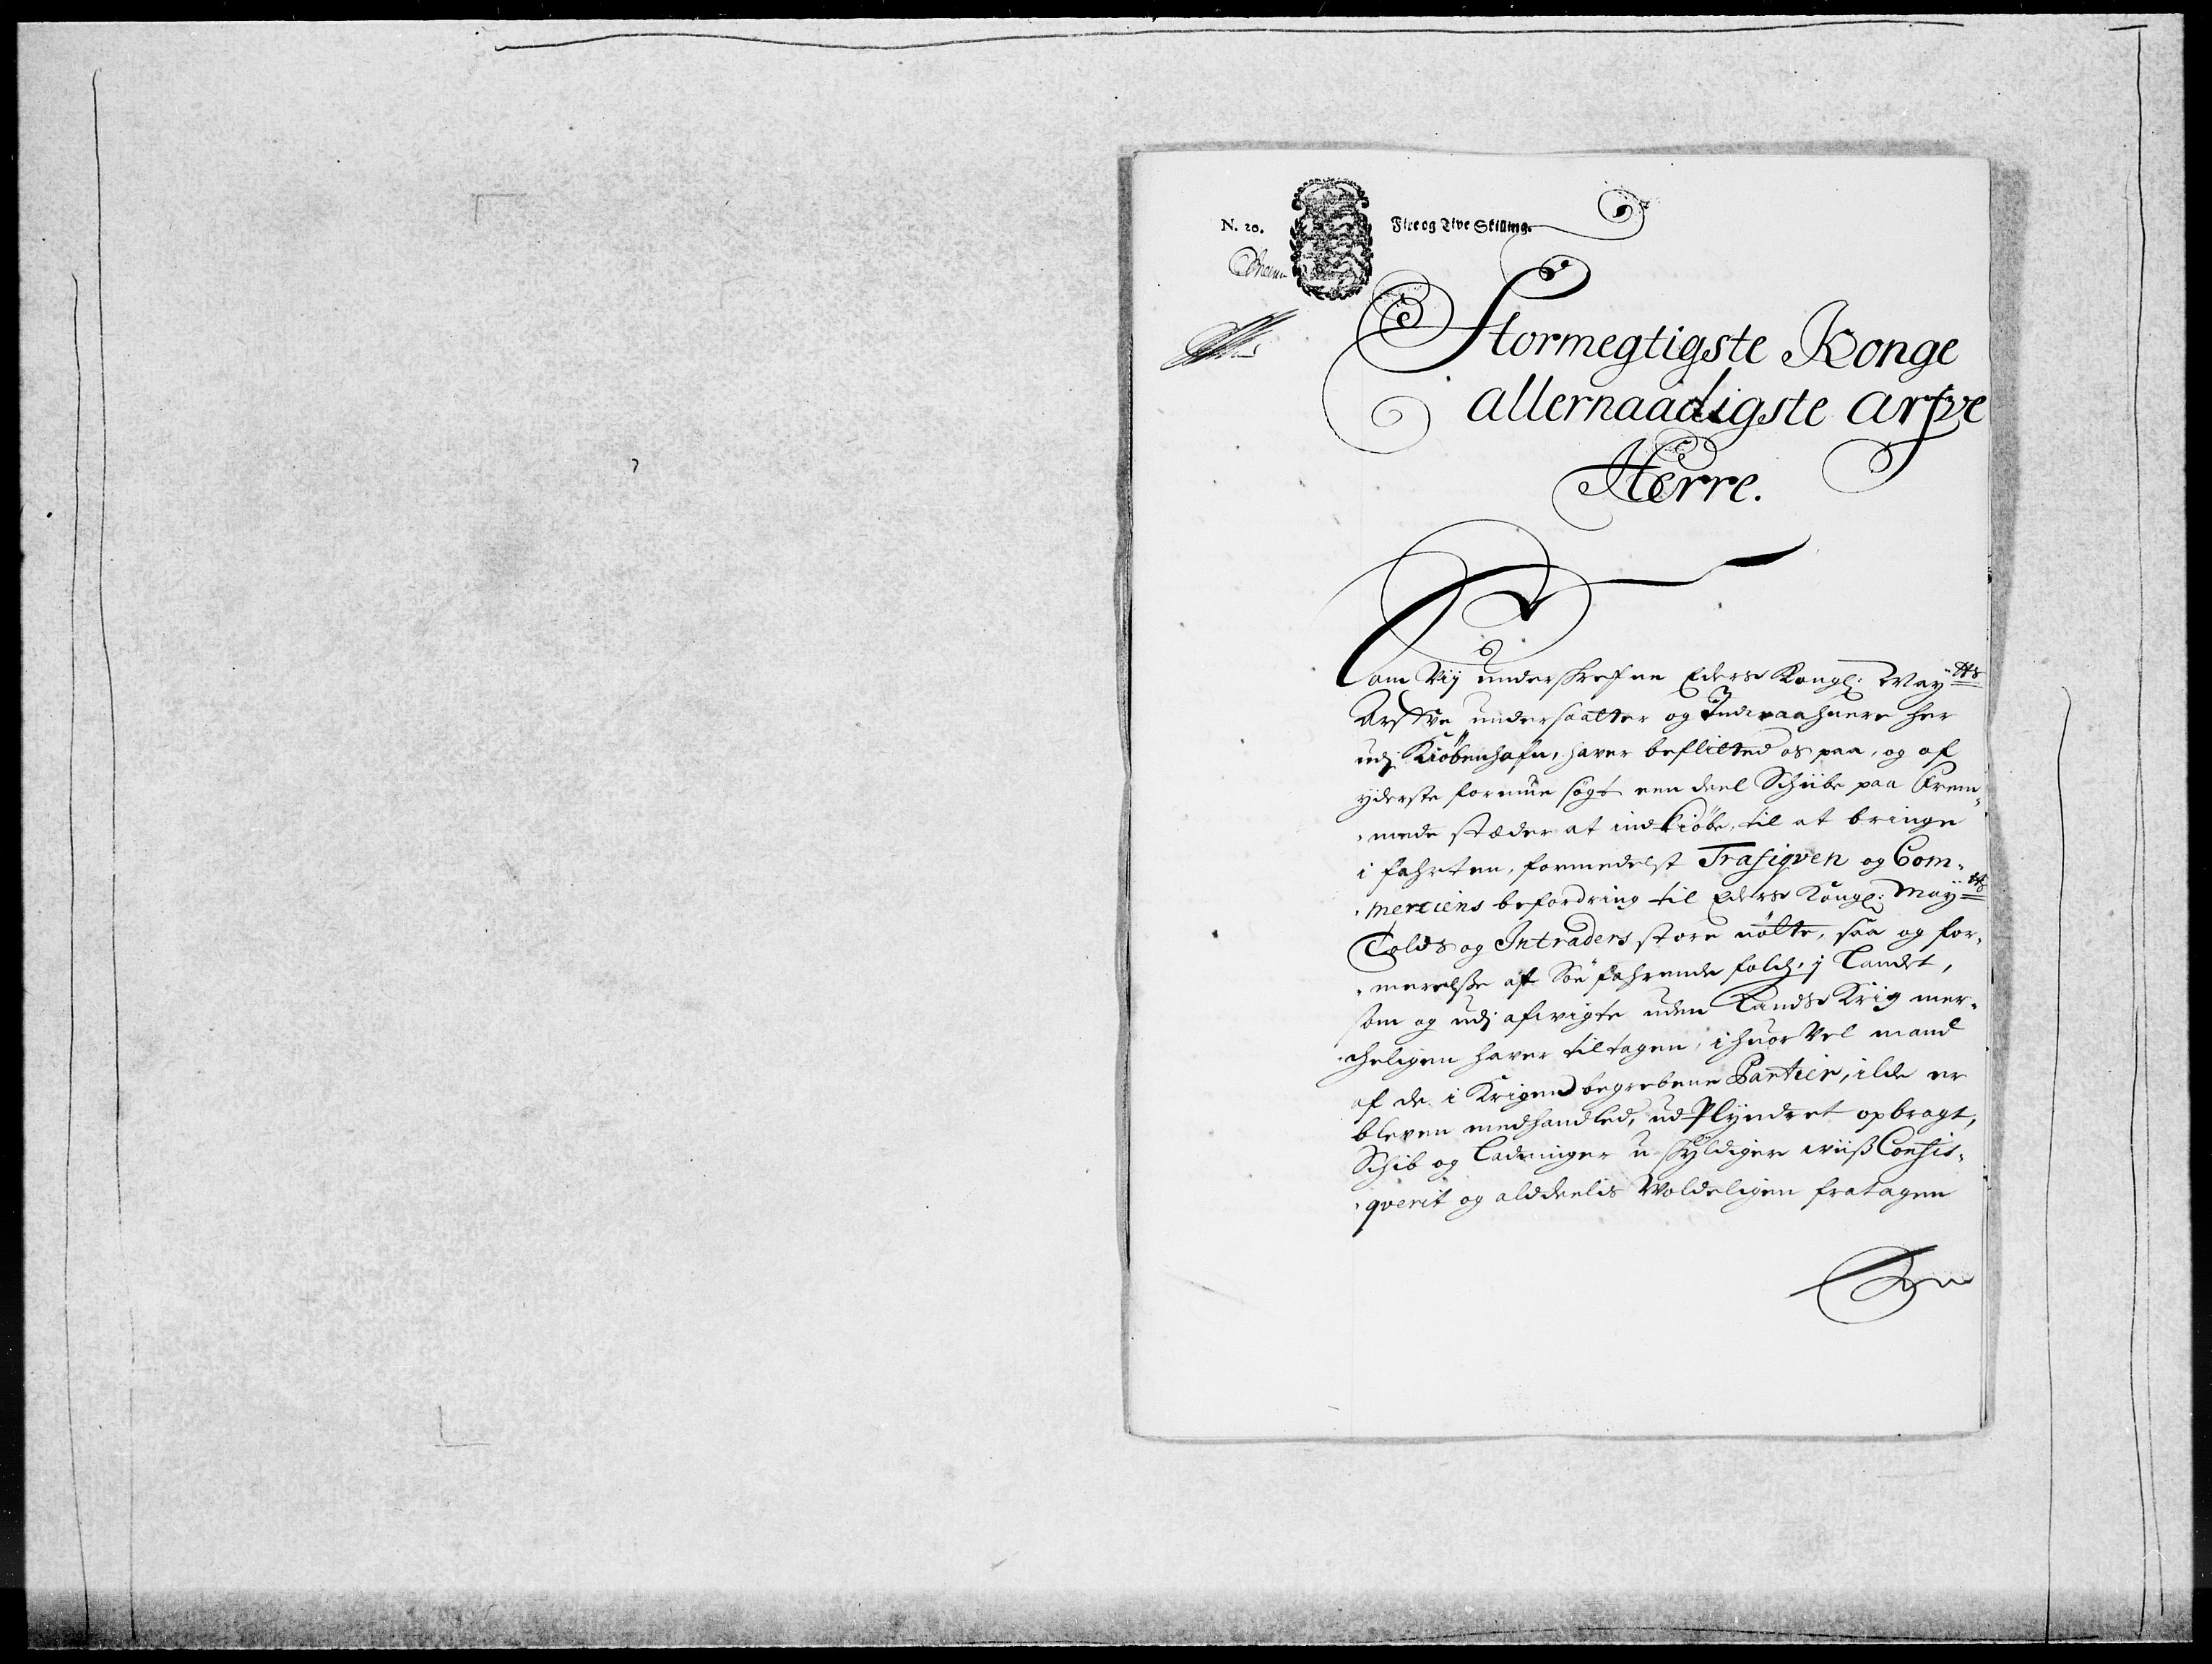 N. 20.
Fire og Tive Skilling.
Stormegtigste Konge
allernaadigste arfve
Herre.
Som Vij underskrefne Eders Kongl: May:tts
Arfve undersaatter og Indvaahnere her
udj Kiöbenhafn, hafver beflitted os paa, og af
yderste formue sögt een deel Schibe paa Frem-
mede stæder at indkiöbe, til at bringe
i fahrten, formedelst Trafiqven og Com-
merciens befordring til Eders Kongl: May:tts
Tolds og Intraders store nötte, saa og for-
merelsse af Söe fahrende folch, j Landet,
som og udj afvigte uden Lands Krig mer-
cheligen hafver tiltagen, ihuor vel mand
af de i Krigen begrebene Partier, ilde er
blefven medhandled, ud Plyndret opbragt,
Schib og Ladninger u-skyldiger viis Confis-
qverit og aldeelis Voldeligen fratagen